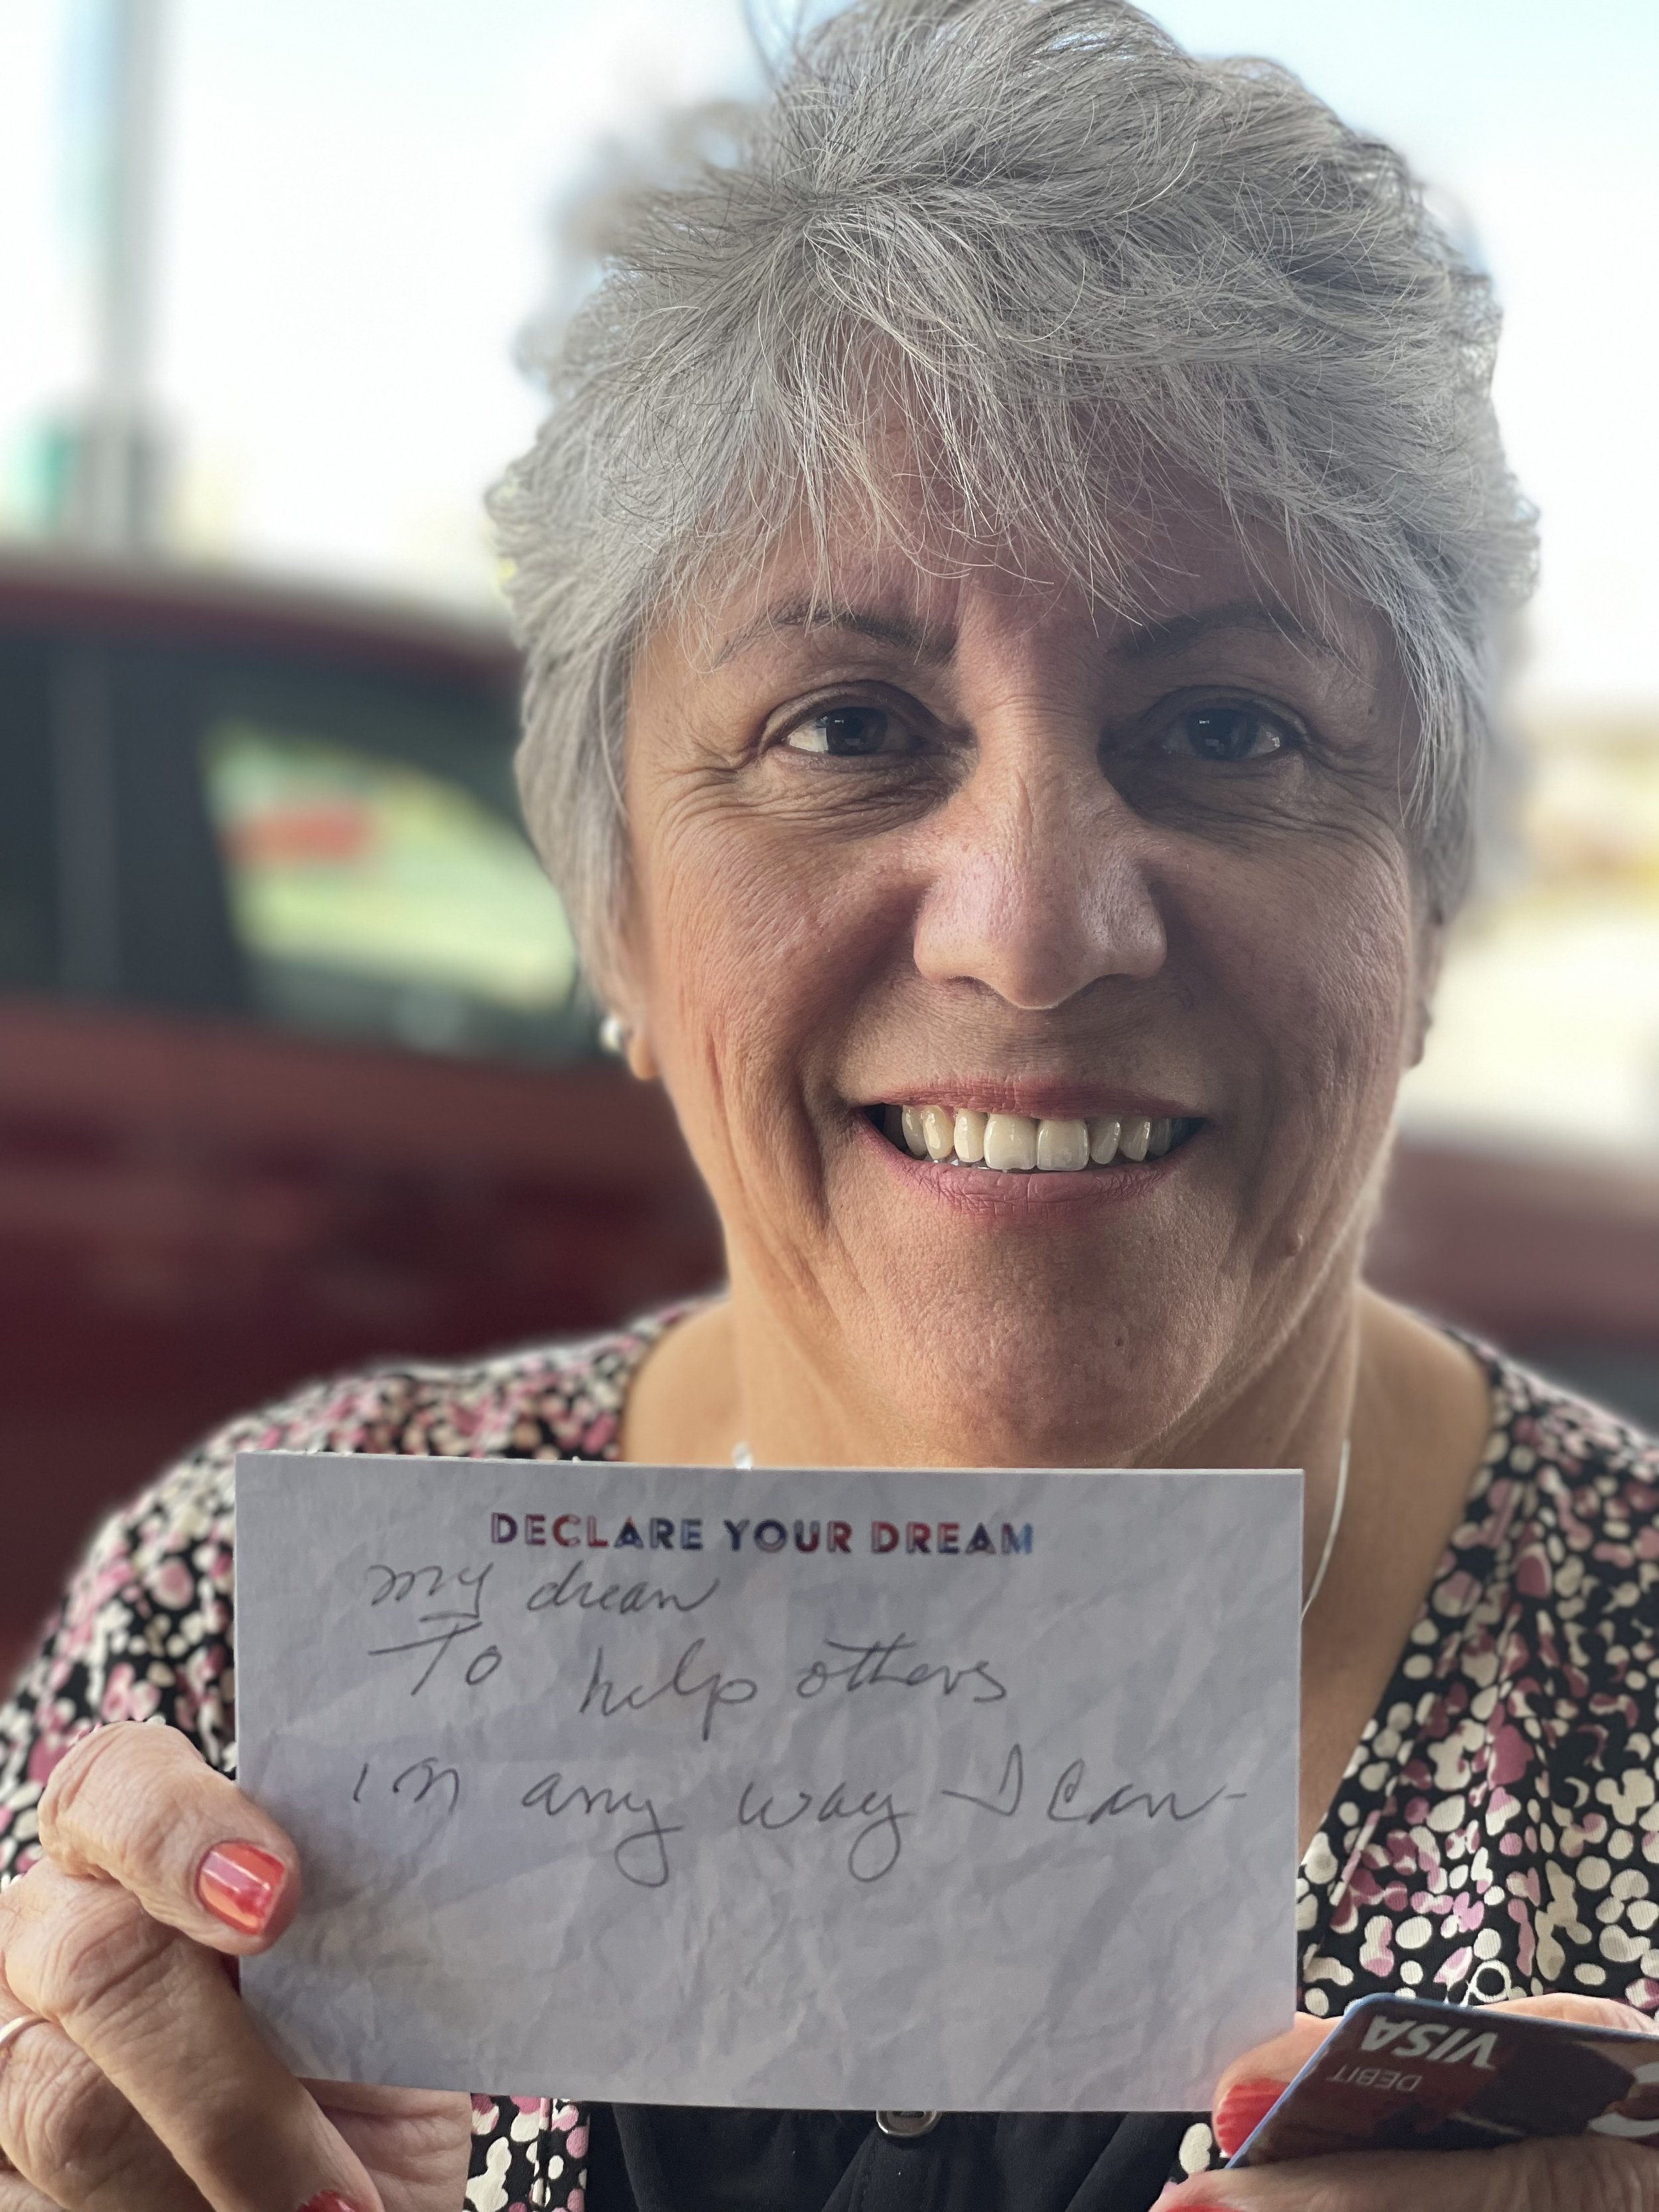 DECLARE YOUR DREAM
my dream
To help others
in any way I can-
VISA
DEBIT